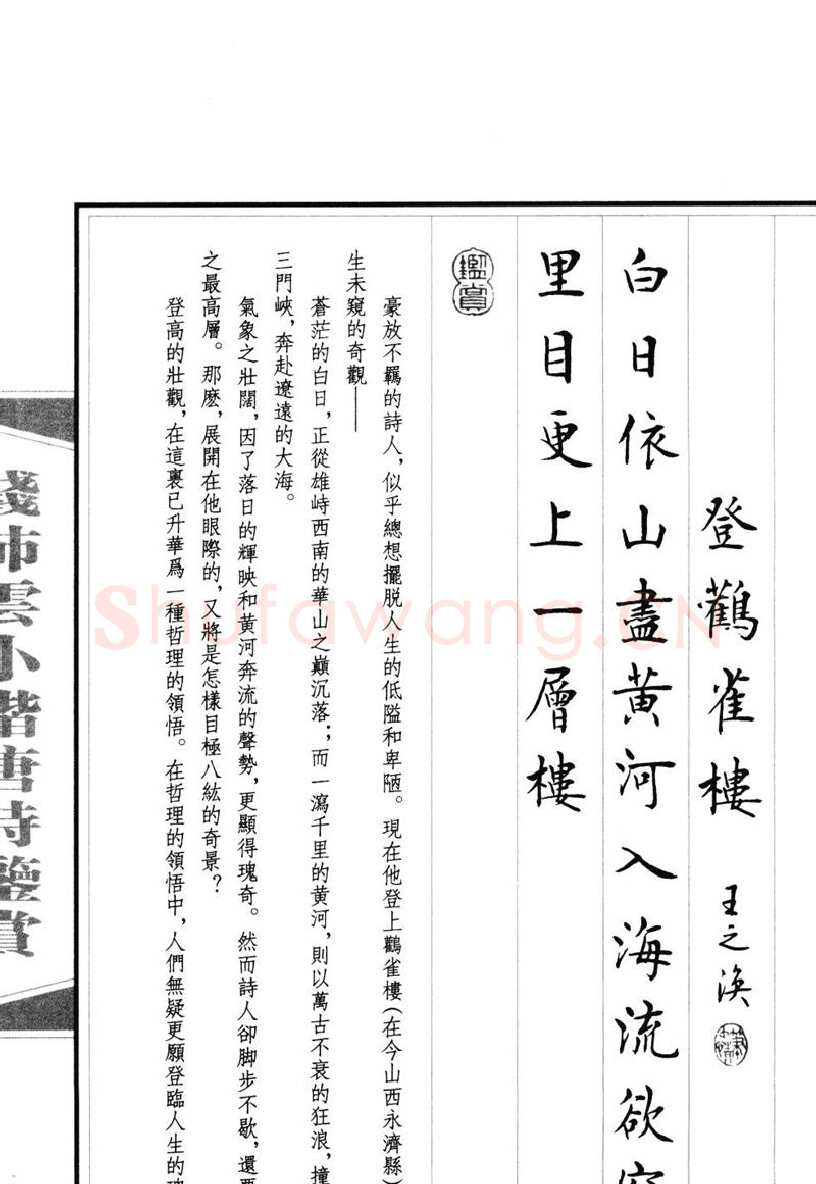 登鸛雀樓 王之渙
白日依山盡黄河入海流欲窮
里目更上一層樓
鑑賞
豪放不羈的詩人，似乎總想擺脱人生的低隘和卑陋。現在他登上鸛雀樓（在今山西永濟縣）
生未窺的奇觀——
蒼茫的白日，正從雄峙西南的華山之巔沉落；而一瀉千里的黄河，則以萬古不衰的狂浪，撞
三門峽，奔赴遼遠的大海。
氣象之壯闊，因了落日的輝映和黄河奔流的聲勢，更顯得瑰奇。然而詩人卻脚步不歇，還要
之最高層。那麽，展開在他眼際的，又將是怎樣目極八紘的奇景？
登高的壯觀，在這裏已升華爲一種哲理的領悟。在哲理的領悟中，人們無疑更願登臨人生的
錢沛雲小楷唐詩鑒賞
Shufawang.CN